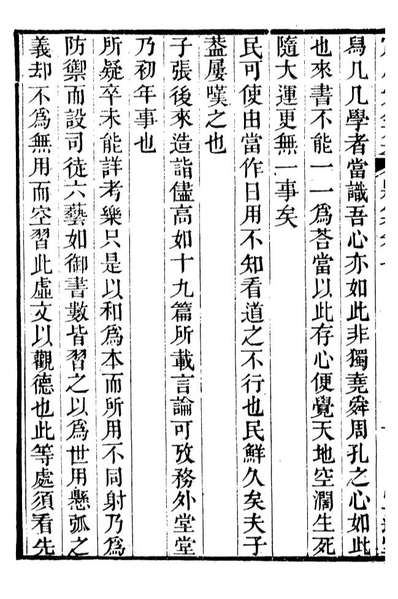 舄几几學者當識吾心亦如此非獨堯舜周孔之心如此
也來書不能一一為荅當以此存心便覺天地空濶生死
隨大運更無一事矣
民可使由當作日用不知看道之不行也民鮮久矣夫子
葢屢嘆之也
子張後來造詣儘高如十九篇所載言論可攷務外堂堂
乃初年事也
所疑卒未能詳考樂只是以和為本而所用不同射乃為
防禦而設司徒六藝如御書數皆習之以為世用懸弧之
義却不為無用而空習此虛文以觀德也此等處須看先